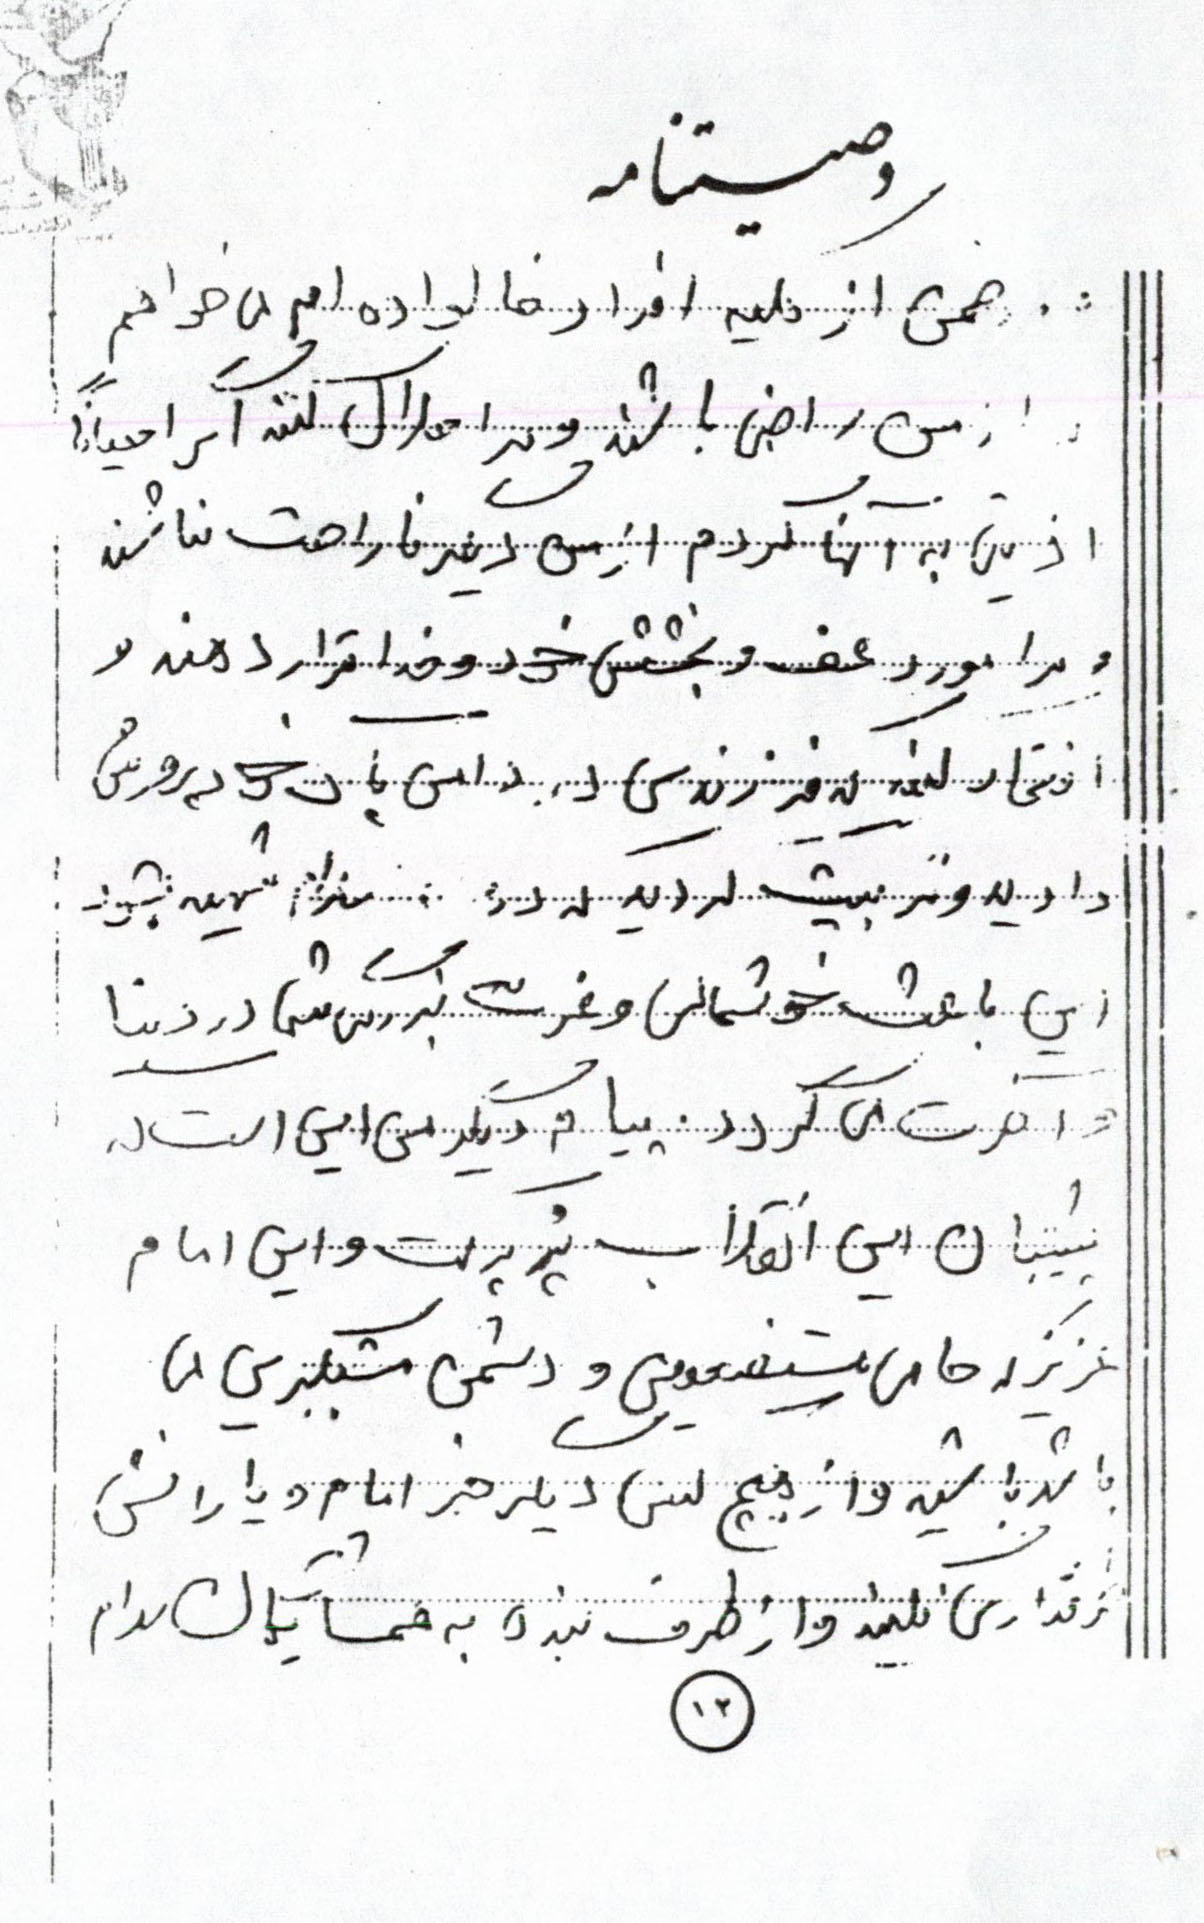 وصیتنامه
ضمن از کلیه افراد خانواده ام می خواهم
از من راضی باشند و مرا حلال کنند اگر احیاناً
اذیتی به آنها کردم از من دیگر ناراحت نباشند
و مرا مورد عفو و بخشش خود و خدا قرار دهند و
افتخار کنید که فرزندی در دامن پاک خود پرورش
دادید و تربیت کردید که در شهید بشود
این باعث خوشحالی و عزت بزرگی شما در دنیا
و آخرت می گردد. پیام دیگر من این است که
پشتیبان این انقلاب پر برکت و این امام
عزیز که حامی مستضعفین و دشمن مستکبرین می
باشد باشید و از هیچ کس دیگر جز امام و یارانش
طرفداری نکنید و از طرف بنده به همه سلام
۱۲